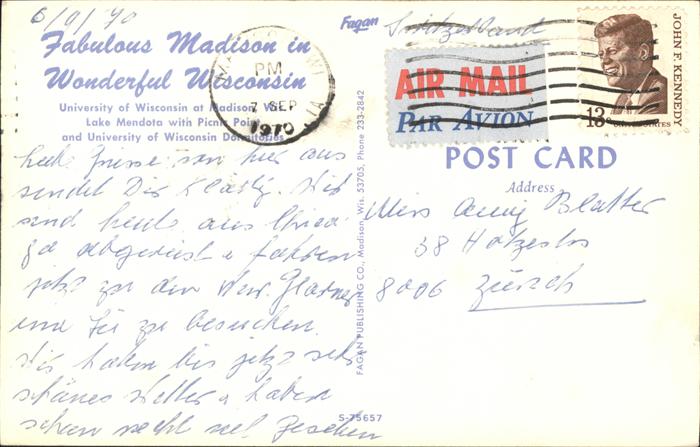 6/9/70
Fabulous Madison in
Wonderful Wisconsin
University of Wisconsin at Madison, Wis.
Lake Mendota with Picnic Point
and University of Wisconsin Dormitories
von hier aus
sendet Dir Klasty. Wir
sind heute aus Chica-
go abgereist + fahren
jetzt zu den New Glarner
um sie zu besuchen.
Wir haben bis jetzt sehr
schönes Wetter + haben
schon recht viel gesehen
S-75657
FAGAN PUBLISHING CO., Madison, Wis. 53705, Phone 233-2842
Fagan
Switzerland
MADISON, WI
PM
7 SEP
1970
AIR MAIL
PAR AVION
JOHN F. KENNEDY
13c
UNITED STATES
POST CARD
Address
Miss Anny Blatter
38 Hotzestr
8006 Zürich